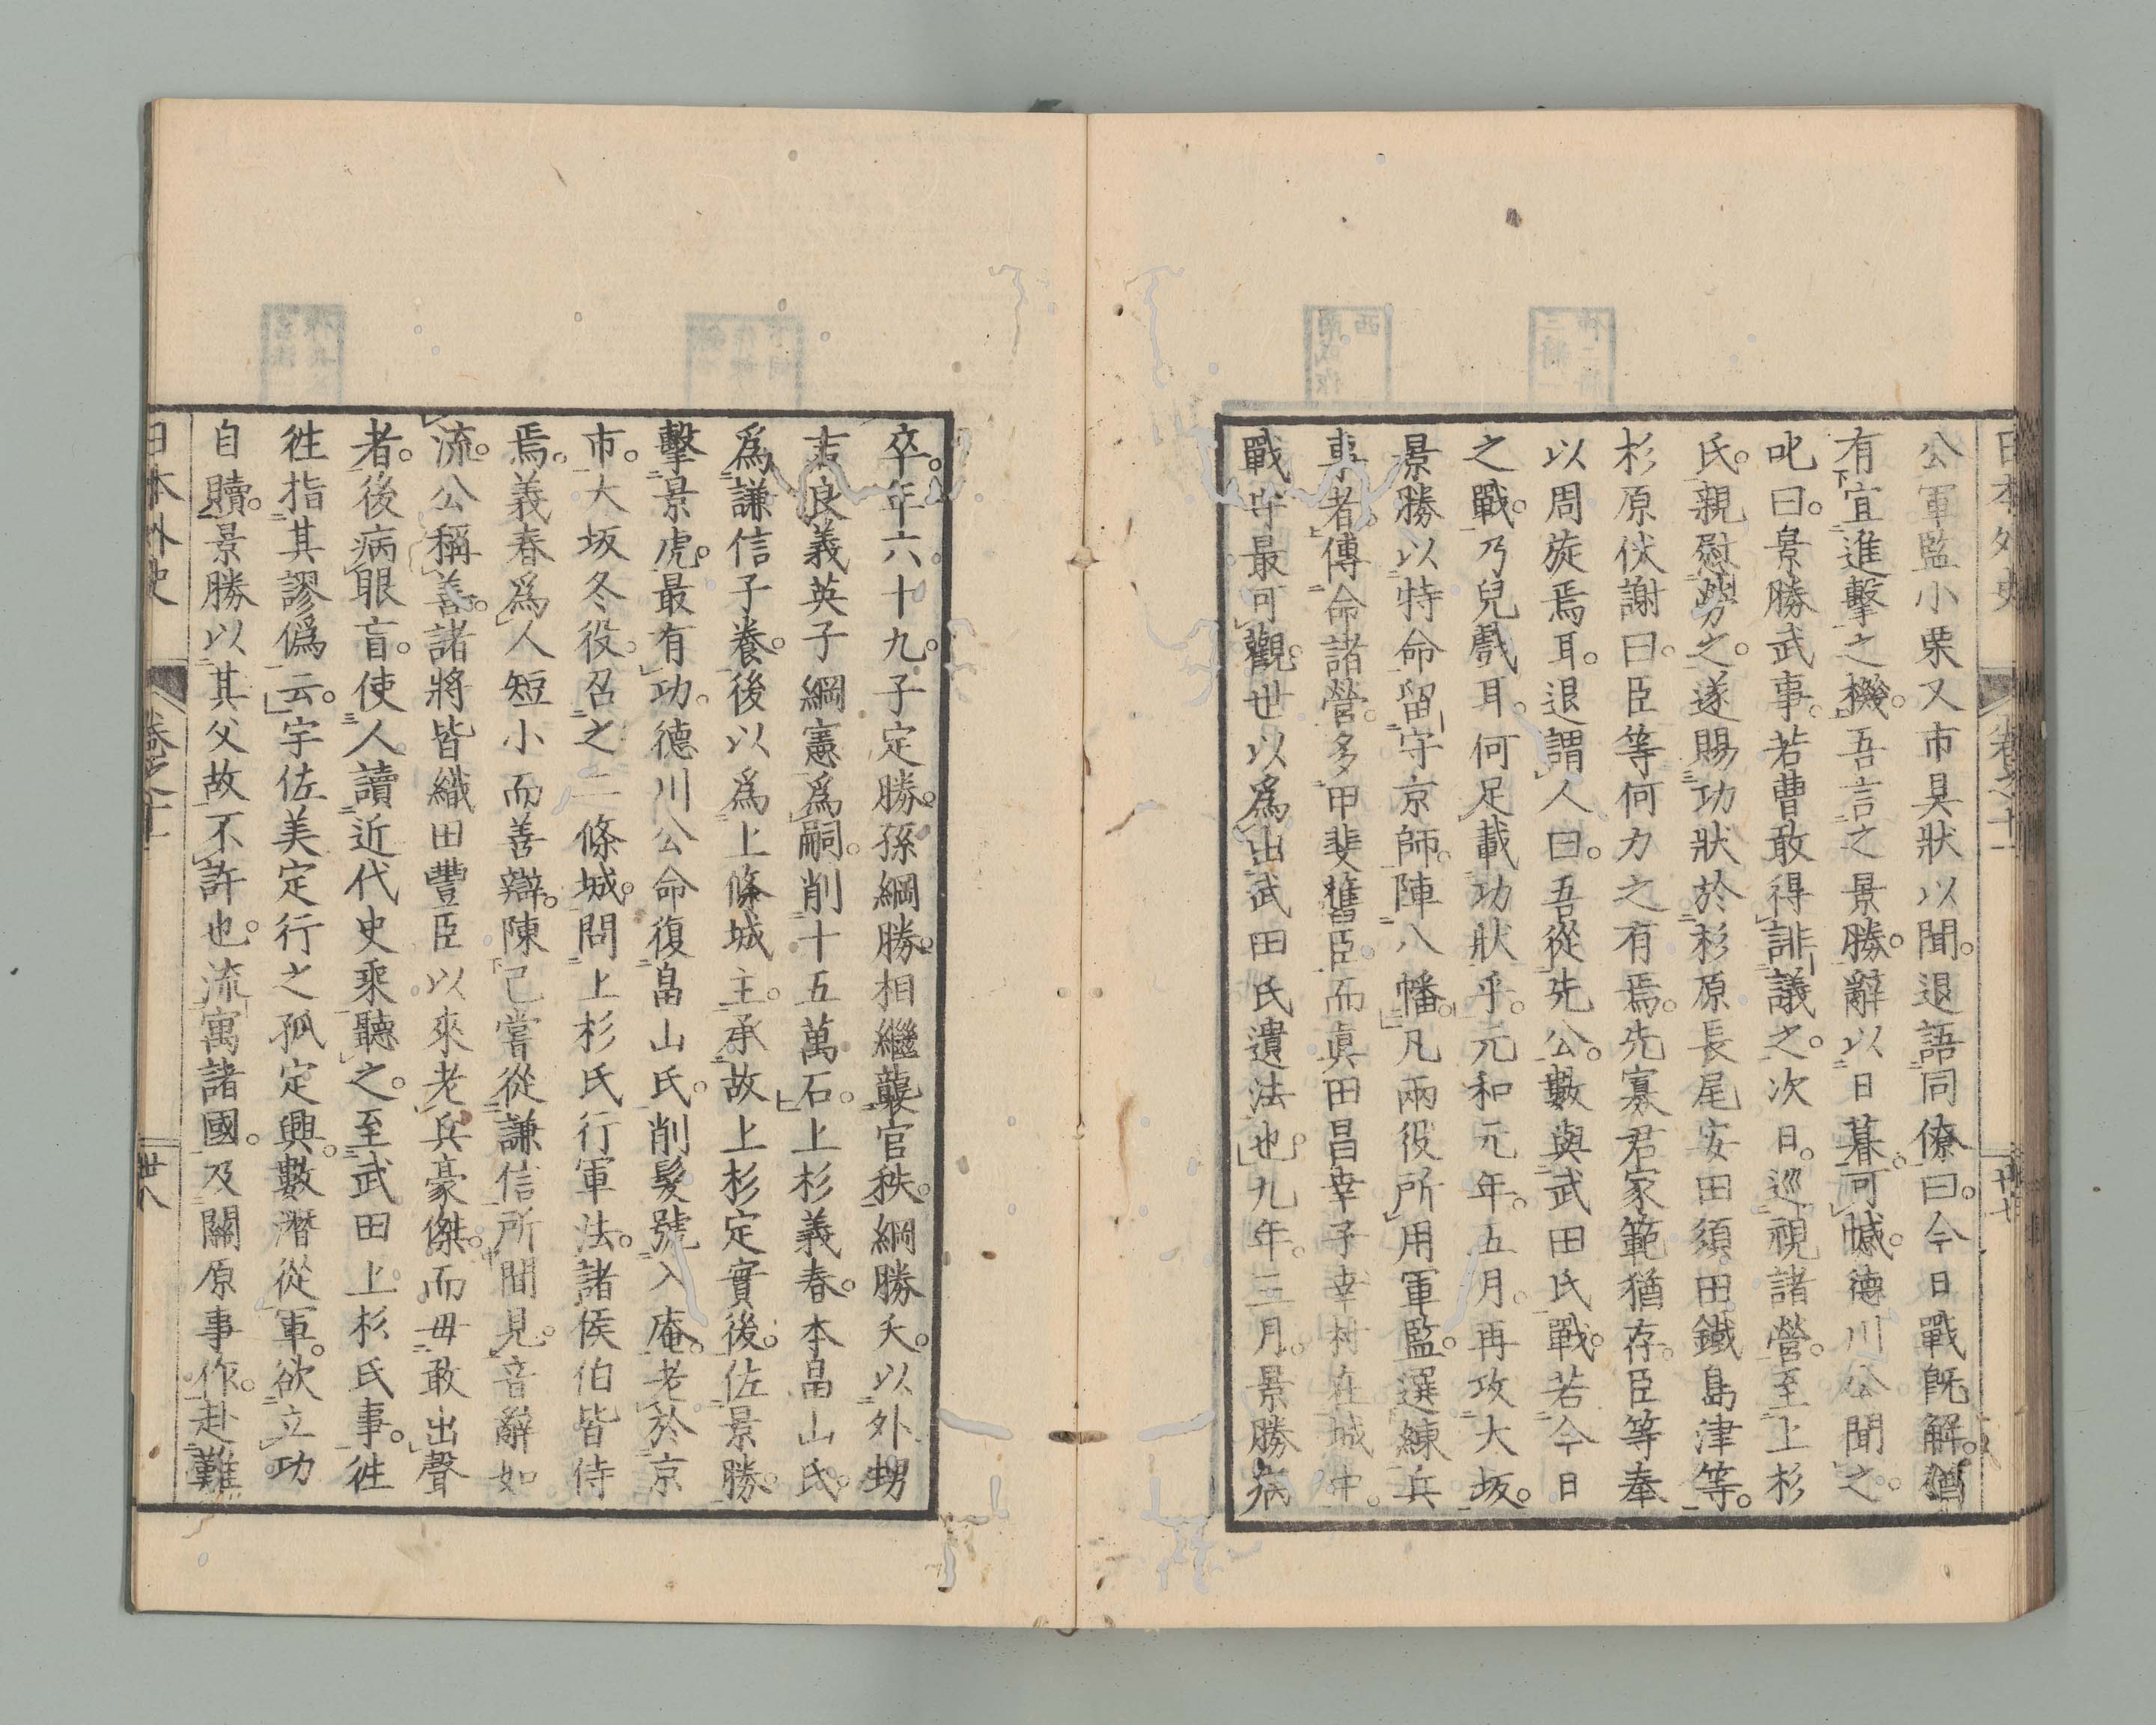 日本外史 卷之十一 廿七
公軍監小栗又市具狀以聞。退語同僚曰。今日戰既解。猶
有宜進擊之機。吾言之景勝。辭以日暮。可憾。德川公聞之。
叱曰。景勝武事。若曹敢得誹議之。次日。巡視諸營。至上杉
氏。親慰勞之。遂賜功狀於杉原長尾安田須田鐵島津等。
杉原伏謝曰。臣等何力之有焉。先寡君家範猶存。臣等奉
以周旋焉耳。退謂人曰。吾從先公。數與武田氏戰。若今日
之戰。乃兒戲耳。何足載功狀乎。元和元年。五月。再攻大坂。
景勝以特命留守京師。陣八幡。凡兩役所用軍監。選練兵
事者。傳命諸營。多甲斐舊臣。而眞田昌幸子幸村在城中。
戰守最可觀。世以爲出武田氏遺法也。九年。三月。景勝病
卒。年六十九。子定勝。孫綱勝。相繼襲官秩。綱勝夭。以外甥
吉良義英子綱憲爲嗣。削十五萬石。上杉義春。本畠山氏。
爲謙信子養。後以爲上條城主。承故上杉定實後。佐景勝。
擊景虎。最有功。德川公命復畠山氏。削髮號入庵。老於京
市。大坂冬役。召之二條城。問上杉氏行軍法。諸侯伯皆侍
焉。義春爲人短小而善辯。陳己嘗從謙信所聞見。音辭如
流。公稱善。諸將皆織田豐臣以來老兵豪傑。而毋敢出聲
者。後病眼盲。使人讀近代史乘聽之。至武田上杉氏事。徃
徃指其謬僞云。宇佐美定行之孤定興。數潛從軍。欲立功
自贖。景勝以其父故不許也。流寓諸國。及關原事作。赴難
日本外史 卷之十一 廿八